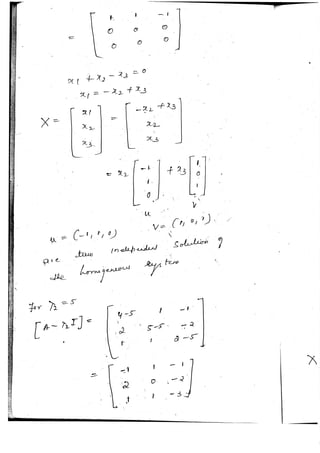 = [ 1 1 -1
0 0 0
0 0 0 ]
x1 + x2 - x3 = 0
x1 = -x2 + x3
X = [ x1 x2 x3 ] = [ -x2 + x3 x2 x3 ]
= x2 [ -1 1 0 ] + x3 [ 1 0 1 ]
u v
u = (-1, 1, 0) v = (1, 0, 1)
are two independent solution of
the homogeneous system
for λ2 = 5
[A - λ2 I] = [ 4-5 1 -1
2 5-5 -2
1 1 2-5 ]
= [ -1 1 -1
2 0 -2
1 1 -3 ]
X